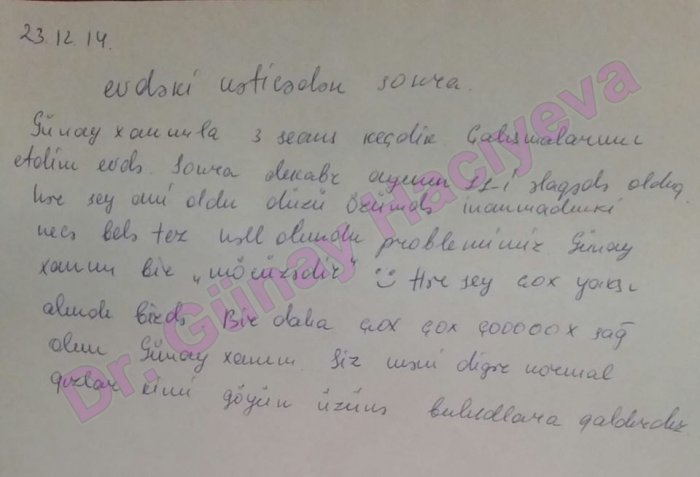 23.12.14.
evdəki nəticədən sonra.
Günay xanımla 3 seans keçdik. Çalışmalarımı
etdim evdə. Sonra dekabr ayının 11-i əlaqədə olduq.
Hər şey ani oldu düzü özümdə inanmadımki
necə belə tez həll olundu problemimiz. Günay
xanım bir „möcüzədir” Hər şey çox yaxşı
alındı bizdə. Bir daha çox çox çooooox sağ
olun Günay xanım. Siz məni digər normal
qızlar kimi göyün üzünə buludlara qaldırdız.
Dr. Günay Hacıyeva